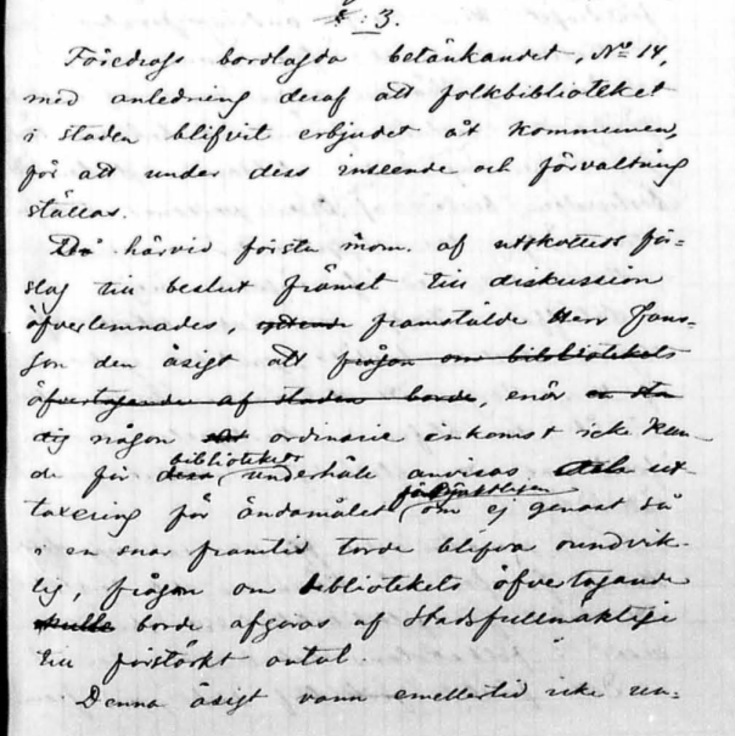 §:3.
Föredrogs bordlagda betänkandet, No 14,
med anledning deraf att folkbiblioteket
i staden blifvit erbjudet åt kommunen,
för att under dess inseende och förvaltning
ställas.
Då härvid första mom. af utskottets för=
slag till beslut främst till diskussion
öfverlemnades, framstälde Herr Jans=
son den åsigt att frågan om bibliotekets
öfvertagande af staden borde, enär en stän
dig någon ordinarie inkomst icke kun-
de för dess bibliotekets underhåll anvisas utan ut
taxering för ändamålet försigtligen om ej genast så
i en snar framtid torde blifva oundvik-
lig, frågan om bibliotekets öfvertagande
skulle borde afgöras af Stadsfullmäktige
till förstärkt antal.
Denna åsigt vann emellertid icke un=